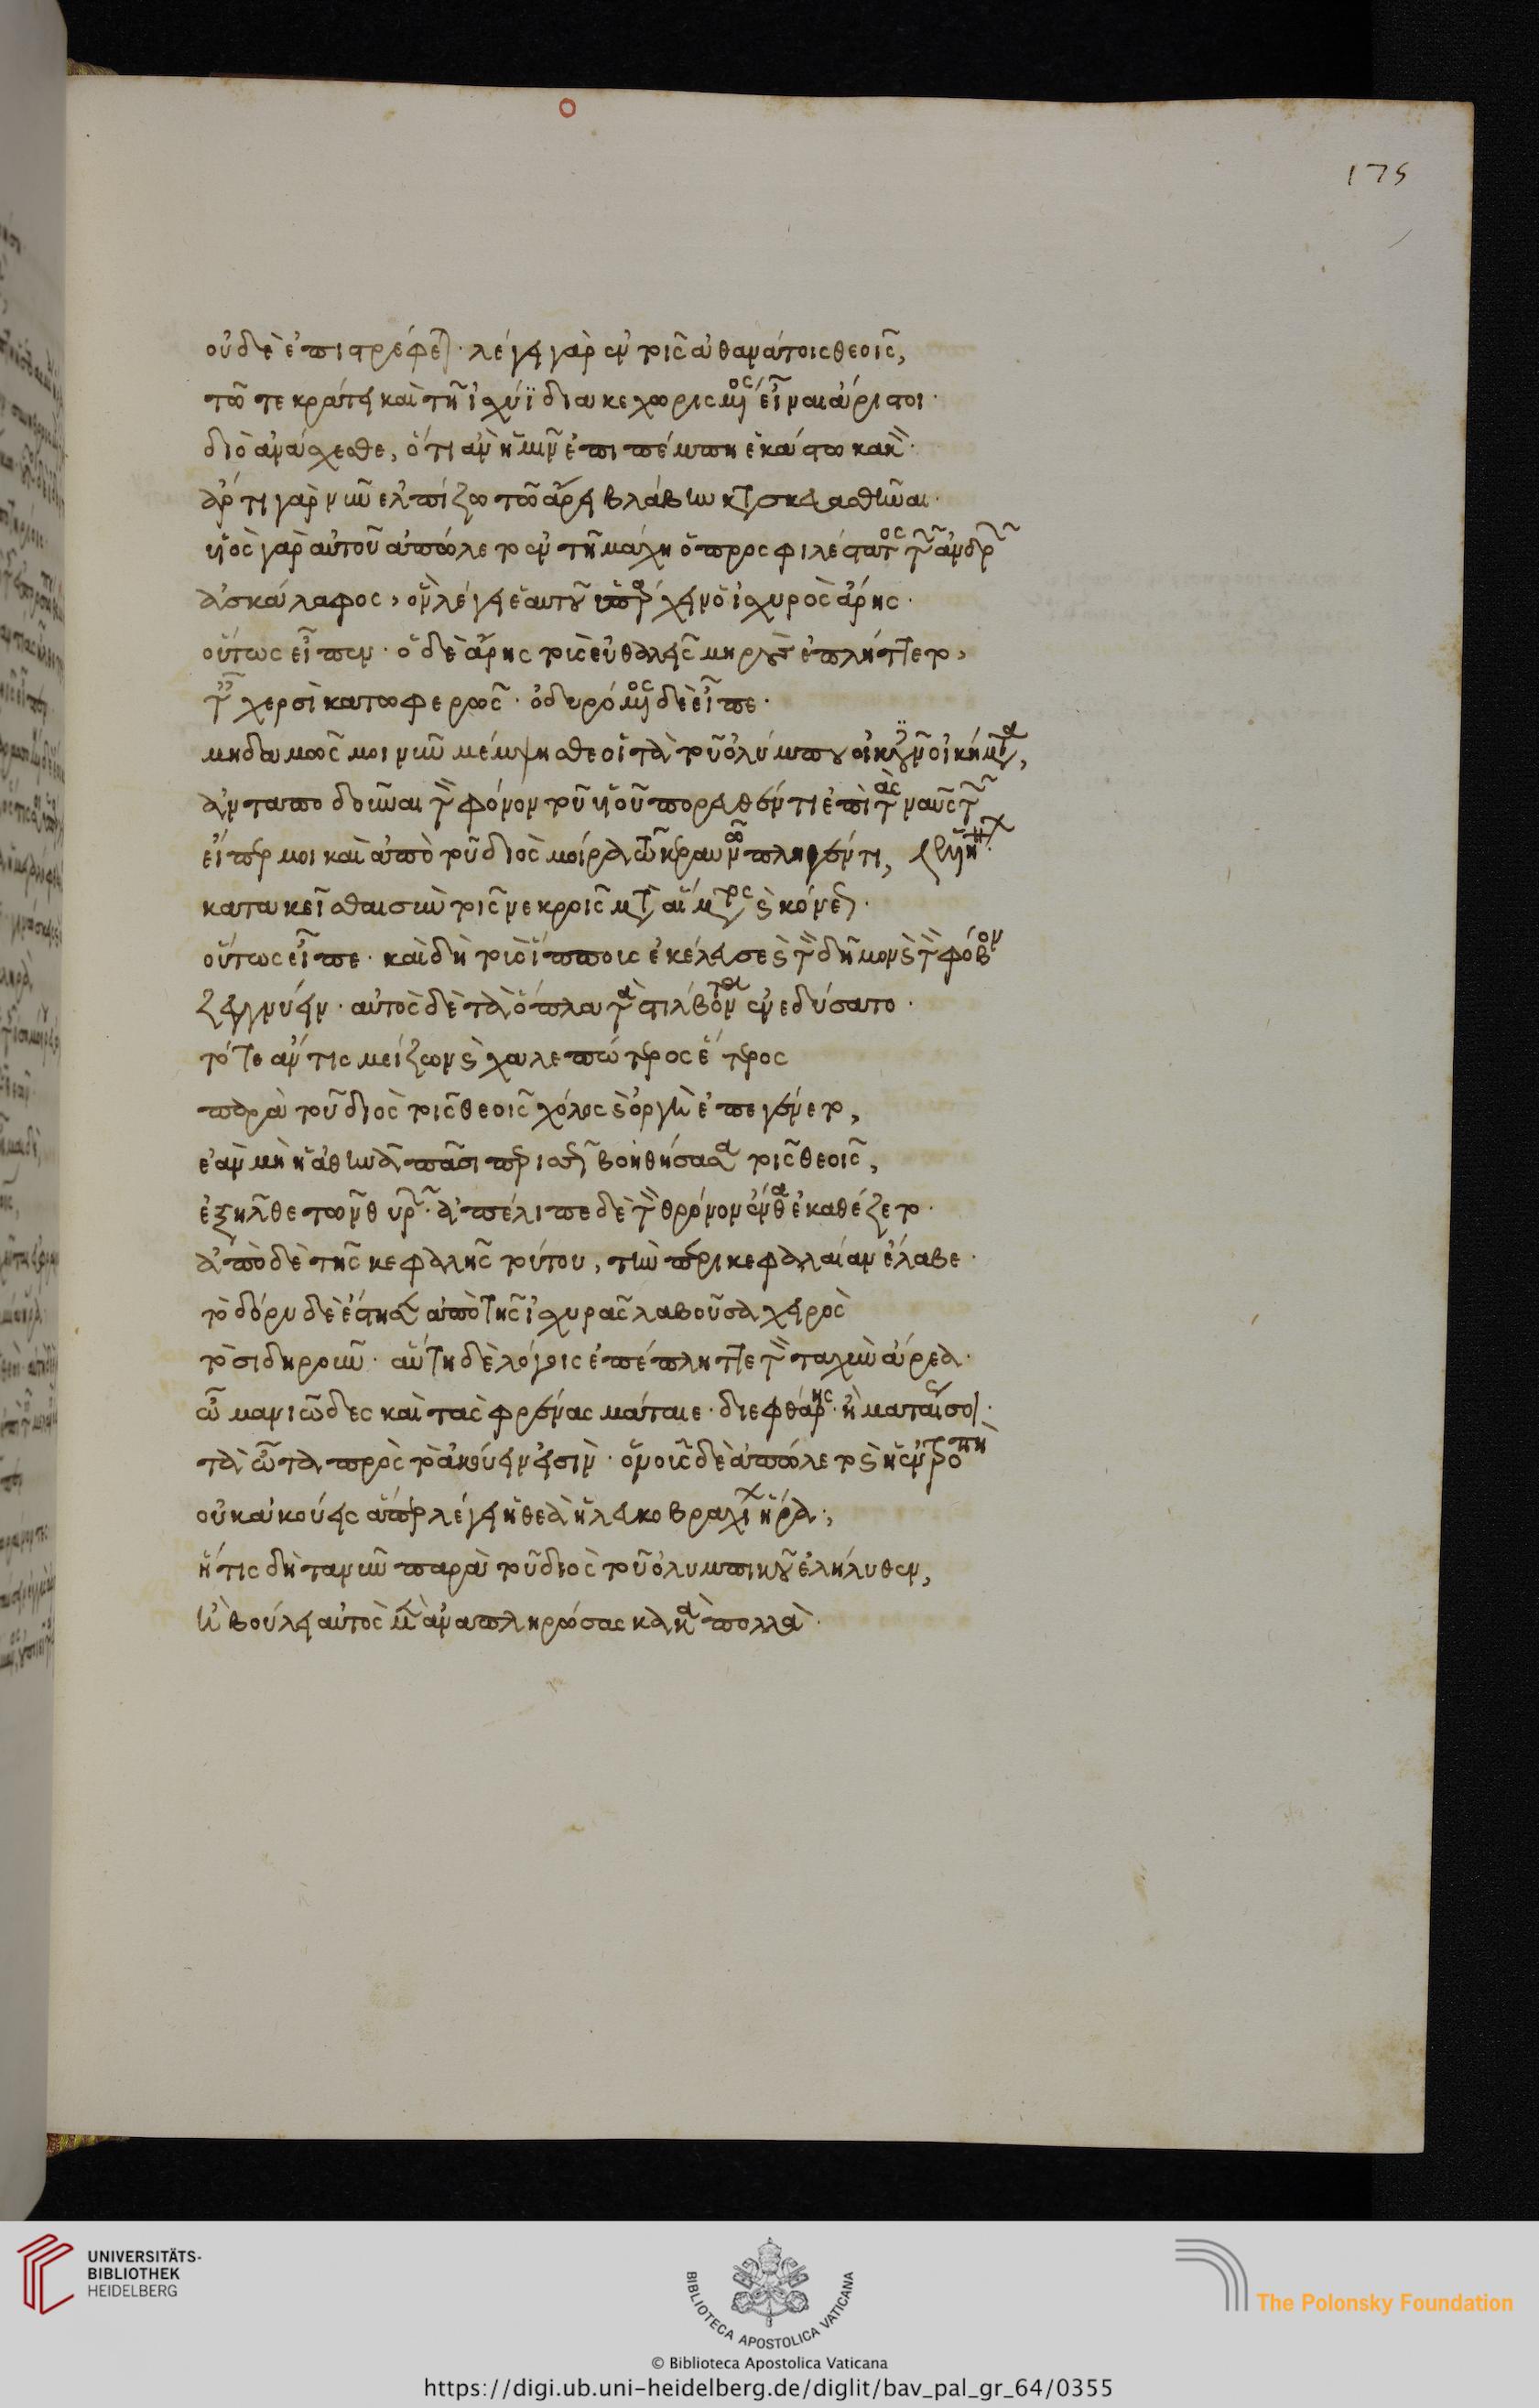 175
οὐδὲ ἐπιστρέφεται· λέγει γὰρ ἐν τοῖς ἀθανάτοις θεοῖς,
τῶ τε κράτει καὶ τῆ ἰσχύϊ διακεχωρισμένος εἶναι ἄριστοι·
διὸ ἀνάσχεσθε, ὅτι ἂν ἡμῖν ἐπιπέμπη ἑκάστω κακὸν·
ἄρτι γὰρ νῦν ἐλπίζω τῶ ἄρει βλάβην κατασκευασθῆναι·
υἱὸς γὰρ αὐτοῦ ἀπώλετο ἐν τῆ μάχη ὁ προσφιλέστατος τῶν ἀνδρῶν
ἀσκάλαφος, ὃν λέγει ἑαυτοῦ ὑπάρχειν ὁ ἰσχυρὸς ἄρης·
οὕτως εἶπεν· ὁ δὲ ἄρης τοὺς εὐθαλεῖς μηροὺς ἐπλήττετο,
ταῖς χερσὶ κατωφερῶς· ὀδυρόμενος δὲ εἶπε·
μηδαμῶς μοι νῦν μέμψησθε οἱ τὰ τοῦ ὀλύμπου οἰκοῦντες οἰκήματα,
ἀνταποδοῦναι τὸν φόνον τοῦ υἱοῦ πορευθέντι ἐπὶ τὰς ναῦς τῶν
εἴπερ μοι καὶ ἀπὸ τοῦ διὸς μοῖρα τῶ κεραυνῶ πληγέντι,
κατακεῖσθαι σὺν τοῖς νεκροῖς μετὰ αἵματος καὶ κόνεως·
οὕτως εἶπε· καὶ δὴ τοὺς ἵππους ἐκέλευσε καὶ τὸν δεῖμον καὶ τὸν φόβον
ζευγνύειν· αὐτὸς δὲ τὰ ὅπλα τὰ στίλβοντα ἐνεδύσατο·
τότε ἄν τις μείζων καὶ χαλεπώτερος ἕτερος
παρὰ τοῦ διὸς τοῖς θεοῖς χόλος καὶ ὀργὴ ἐπεγένετο,
ἐὰν μὴ ἡ ἀθηνᾶ πᾶσι περισσῶς βοηθήσασα τοῖς θεοῖς,
ἐξῆλθε τῶν θυρῶν· ἀπέλιπε δὲ τὸν θρόνον ἔνθα ἐκαθέζετο·
ἀπὸ δὲ τῆς κεφαλῆς τούτου, τὴν περικεφαλαίαν ἔλαβε·
τὸ δόρυ δὲ ἔστησεν ἀπὸ τῆς ἰσχυρᾶς λαβοῦσα χειρὸς
τὸ σιδηροῦν· αὕτη δὲ λόγοις ἐπέπληττε τὸν ταχὺν ἄρεα·
ὦ μανιῶδες καὶ τὰς φρένας μάταιε· διεφθάρης· ἢ ματαίως σοι
τὰ ὦτα πρὸς τὸ ἀκούειν εἰσὶν· ὁ νοῦς δὲ ἀπώλετο καὶ ἡ ἐντροπὴ
οὐκ ἀκούεις ἅπερ λέγει ἡ θεὰ ἡ λευκοβραχίων ἥρα·,
ἥτις δὴ τανῦν παρὰ τοῦ διὸς τοῦ ὀλυμπικοῦ ἐλήλυθεν,
ἢ βούλει αὐτὸς μὲν ἀναπληρώσας κακὰ πολλὰ·
UNIVERSITÄTS-
BIBLIOTHEK
HEIDELBERG
BIBLIOTECA APOSTOLICA VATICANA
The Polonsky Foundation
© Biblioteca Apostolica Vaticana
https://digi.ub.uni-heidelberg.de/diglit/bav_pal_gr_64/0355